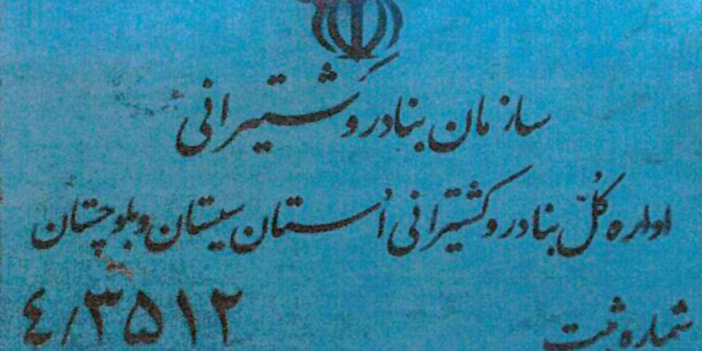 سازمان بنادر و کشتیرانی
اداره کل بنادر و کشتیرانی استان سیستان و بلوچستان
شماره ثبت ۴/۳۵۱۲